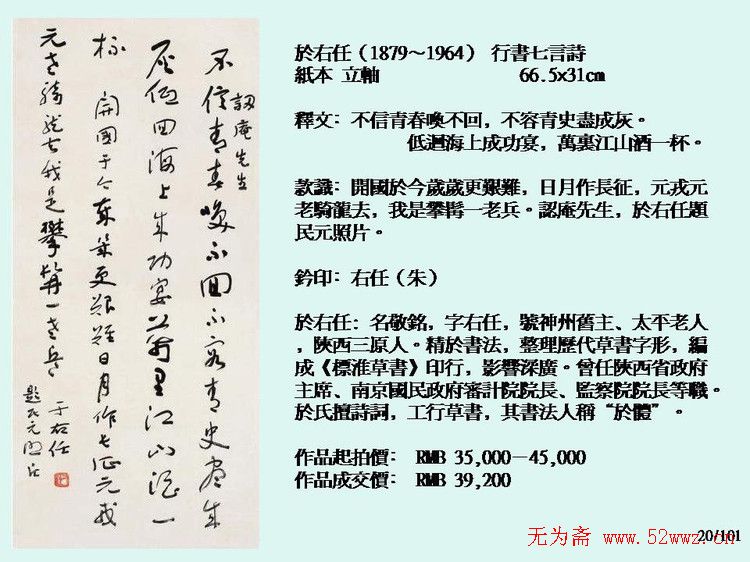 不信青春喚不回不容青史盡成
訒庵先生
灰低回海上成功宴萬里江山酒一
杯 開國于今歲歲更艱難日月作長征元戎
元老騎龍去我是攀髯一老兵
于右任
題民元照片
於右任（1879～1964） 行書七言詩
紙本 立軸 66.5x31cm
釋文：不信青春喚不回，不容青史盡成灰。
低迴海上成功宴，萬裏江山酒一杯。
款識：開國於今歲歲更艱難，日月作長征，元戎元
老騎龍去，我是攀髯一老兵。認庵先生，於右任題
民元照片。
鈐印：右任（朱）
於右任：名敬銘，字右任，號神州舊主、太平老人
，陝西三原人。精於書法，整理歷代草書字形，編
成《標准草書》印行，影響深廣。曾任陝西省政府
主席、南京國民政府審計院院長、監察院院長等職。
於氏擅詩詞，工行草書，其書法人稱“於體”。
作品起拍價： RMB 35,000－45,000
作品成交價： RMB 39,200
20/101
无为斋 www.52wwz.cn